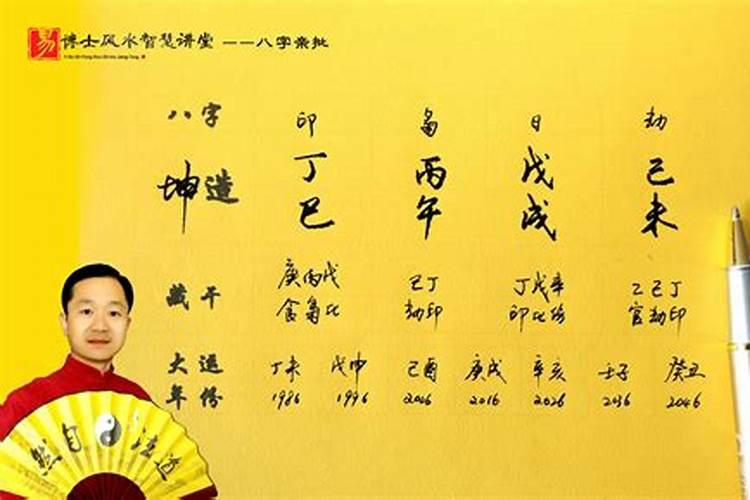 易 博士风水智慧讲堂 ——八字亲批
八字 印 枭 日 劫
坤造 丁 丙 戊 己
巳 午 戌 未
藏干 庚丙戊 己丁 丁戊辛 乙己丁
食枭比 劫印 印比伤 官劫印
大运 丁未 戊申 己酉 庚戌 辛亥 壬子 癸丑
年份 1986 1996 2006 2016 2026 2036 2046
道法自然